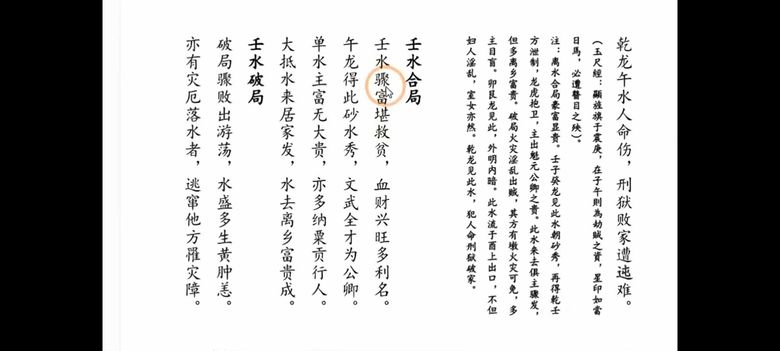 乾龙午水人命伤，刑狱败家遭迍难。
（玉尺經：顯旌旗于震庚，在子午則為劫賊之資，星印如當
日馬，必遭瞽目之殃）。
注：离水合局豪富显贵。壬子癸龙见此水朝砂秀，再得乾壬
方泄制，龙虎抱卫，主出魁元公卿之贵。此水来去俱主骤发，
但多离乡富贵。破局火灾淫乱出贼，其方有墩火灾可免，多
主目盲。卯艮龙见此，外明内暗。此水流于酉上出口，不但
妇人淫乱，室女亦然。乾龙见此水，犯人命刑狱破家。
壬水合局
壬水骤富堪救贫，血财兴旺多利名。
午龙得此砂水秀，文武全才为公卿。
单水主富无大贵，亦多纳粟贡行人。
大抵水来居家发，水去离乡富贵成。
壬水破局
破局骤败出游荡，水盛多生黄肿恙。
亦有灾厄落水者，逃窜他方罹灾障。